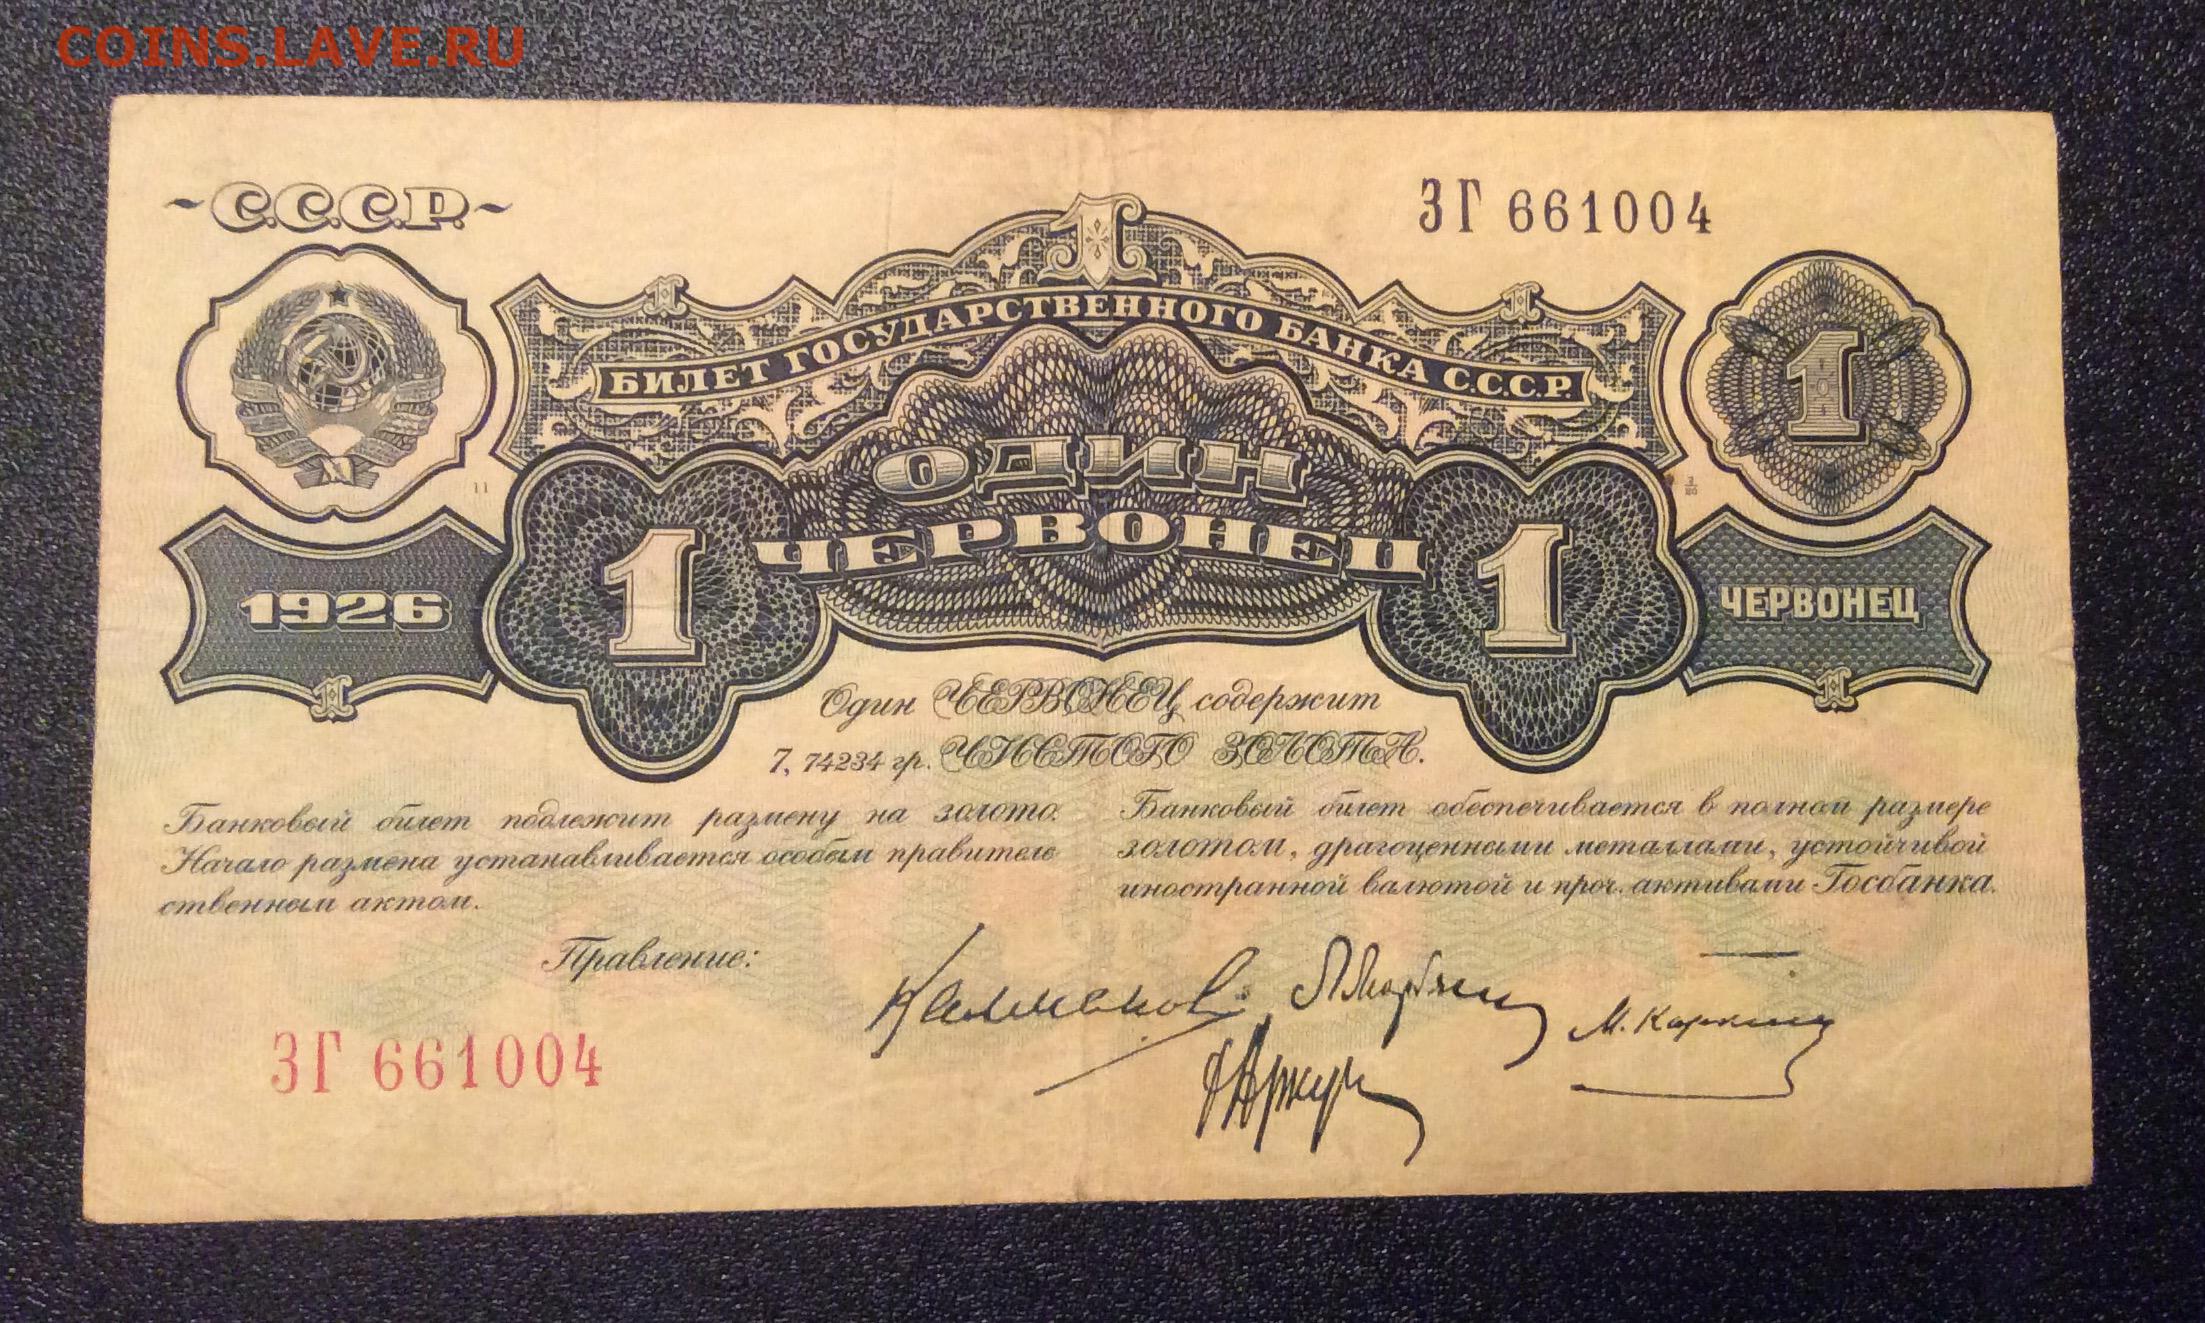 COINS.LAVE.RU
~С.С.С.Р.~
ЗГ 661004
1
1
1
БИЛЕТ ГОСУДАРСТВЕННОГО БАНКА С.С.С.Р.
1
ОДИН
11
ЧЕРВОНЕЦ
1
1
1926
ЧЕРВОНЕЦ
1
1
Один ЧЕРВОНЕЦ содержит
7, 74234 гр. ЧИСТОГО ЗОЛОТА.
Банковый билет подлежит размену на золото.
Начало размена устанавливается особым правитель
ственным актом.
Банковый билет обеспечивается в полном размере
золотом, драгоценными металлами, устойчивой
иностранной валютой и проч. активами Госбанка.
Правление:
М. Карклин
ЗГ 661004